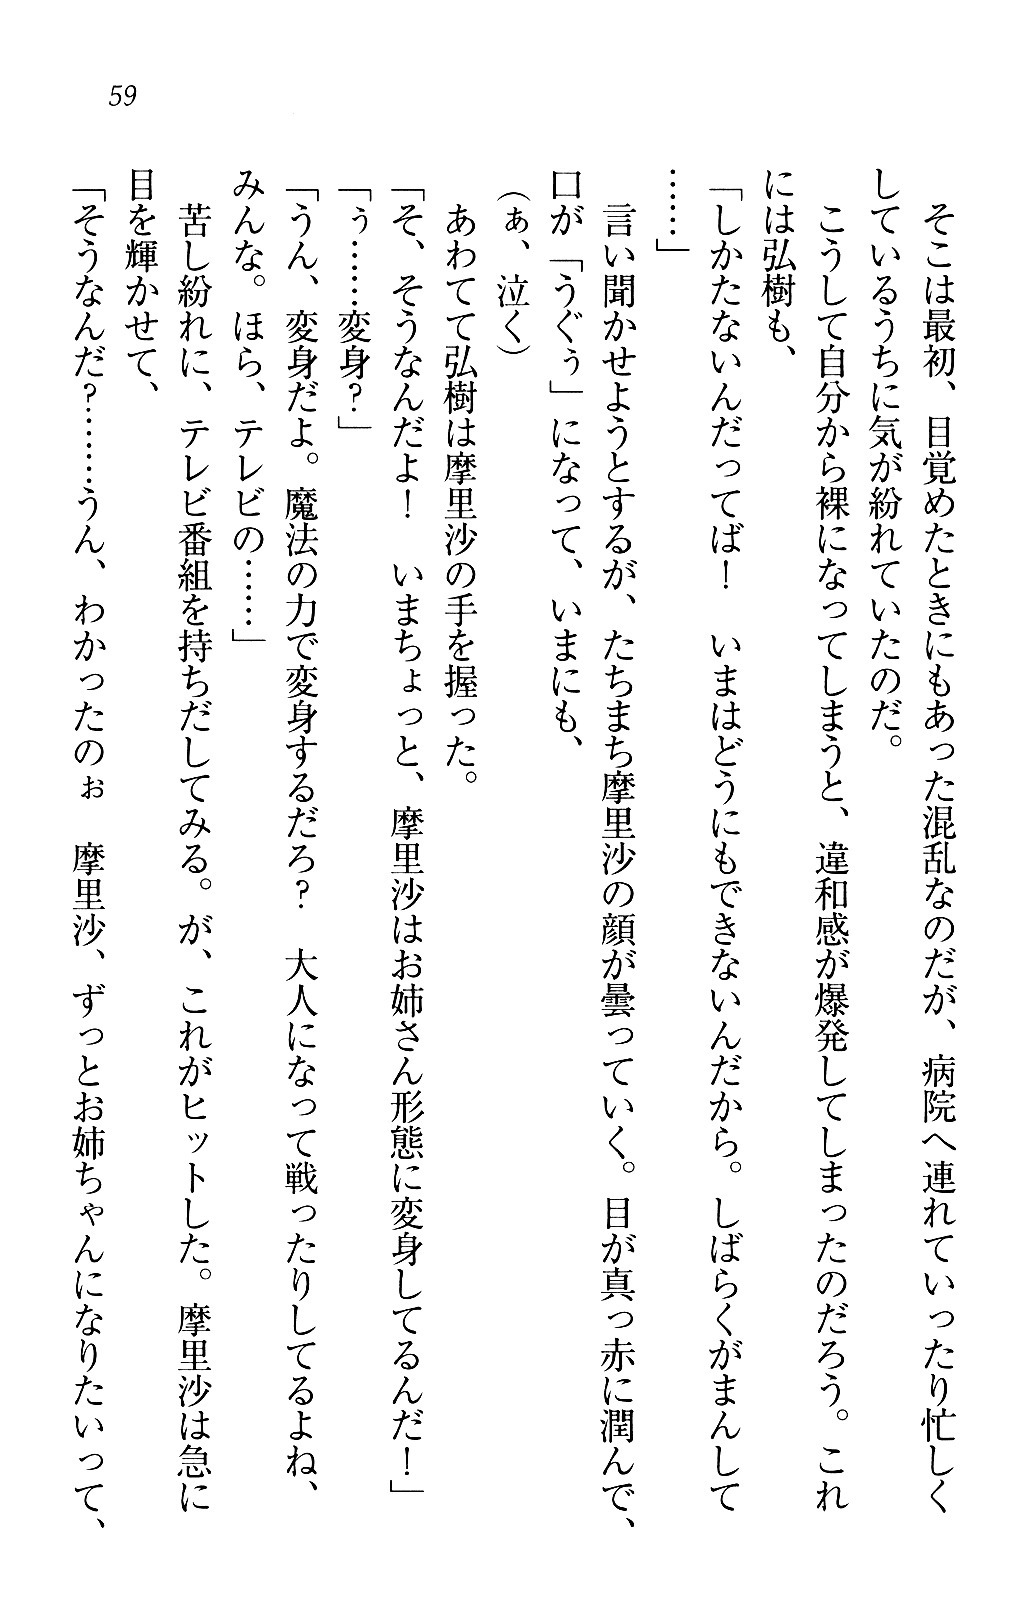 59
そこは最初、目覚めたときにもあった混乱なのだが、病院へ連れていったり忙しく
しているうちに気が紛れていたのだ。
こうして自分から裸になってしまうと、違和感が爆発してしまったのだろう。これ
には弘樹も、
「しかたないんだってば！　いまはどうにもできないんだから。しばらくがまんして
……」
言い聞かせようとするが、たちまち摩里沙の顔が曇っていく。目が真っ赤に潤んで、
口が「うぐぅ」になって、いまにも、
（ぁ、泣く）
あわてて弘樹は摩里沙の手を握った。
「そ、そうなんだよ！　いまちょっと、摩里沙はお姉さん形態に変身してるんだ！」
「ぅ……変身？」
「うん、変身だよ。魔法の力で変身するだろ？　大人になって戦ったりしてるよね、
みんな。ほら、テレビの……」
苦し紛れに、テレビ番組を持ちだしてみる。が、これがヒットした。摩里沙は急に
目を輝かせて、
「そうなんだ？……うん、わかったのぉ　摩里沙、ずっとお姉ちゃんになりたいって、